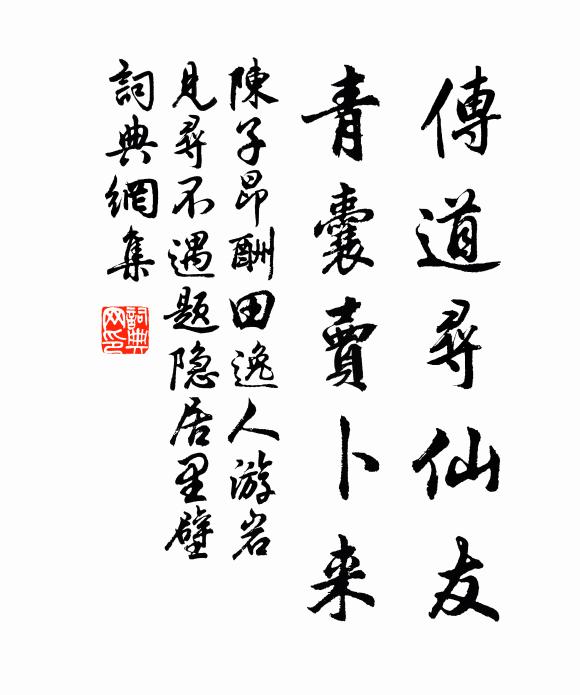 傳道尋仙友
青囊賣卜来
陳子昂酬田逸人游岩
見尋不遇題隐居里壁
詞典網集
詞典网印